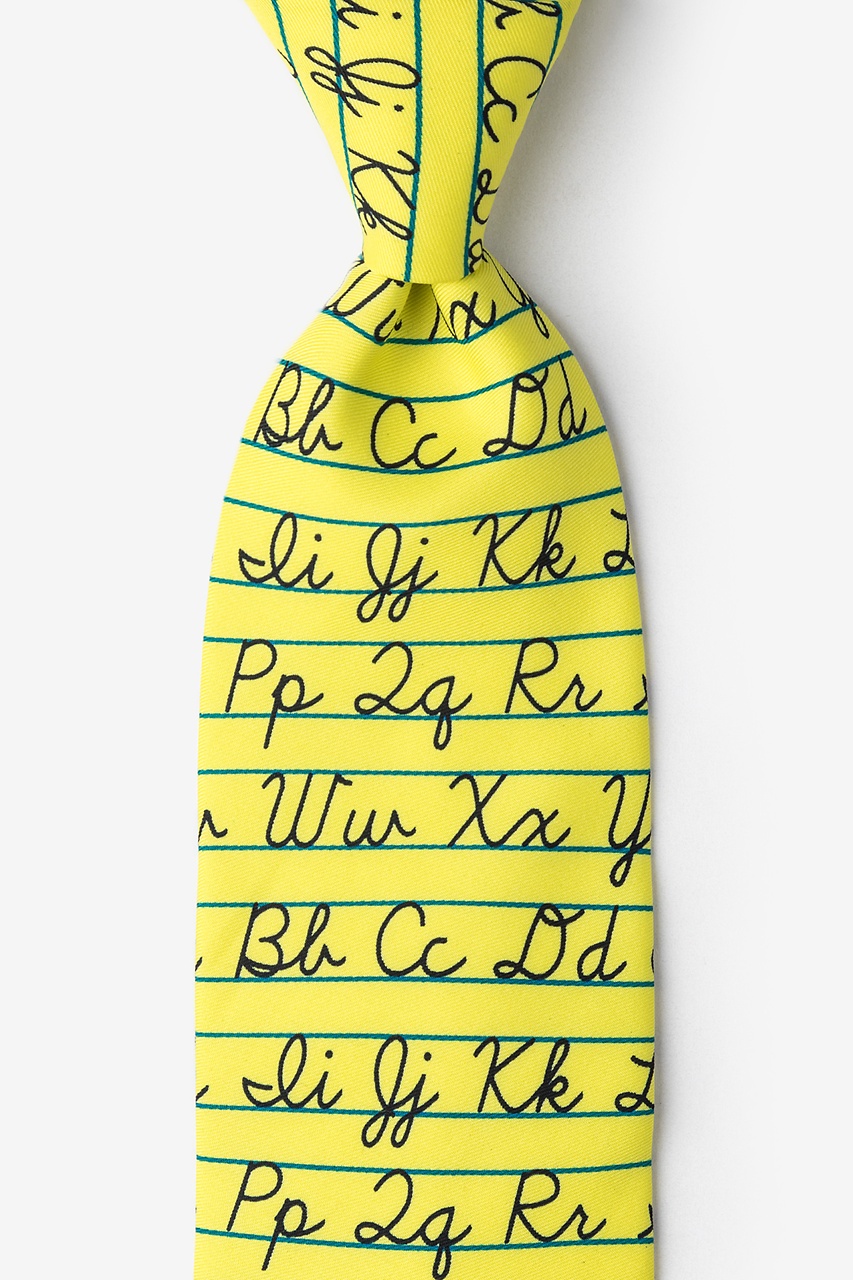 Bb Cc Dd
Ii Jj Kk L
Pp Qq Rr
Ww Xx Y
Bb Cc Dd
Ii Jj Kk L
Pp Qq Rr